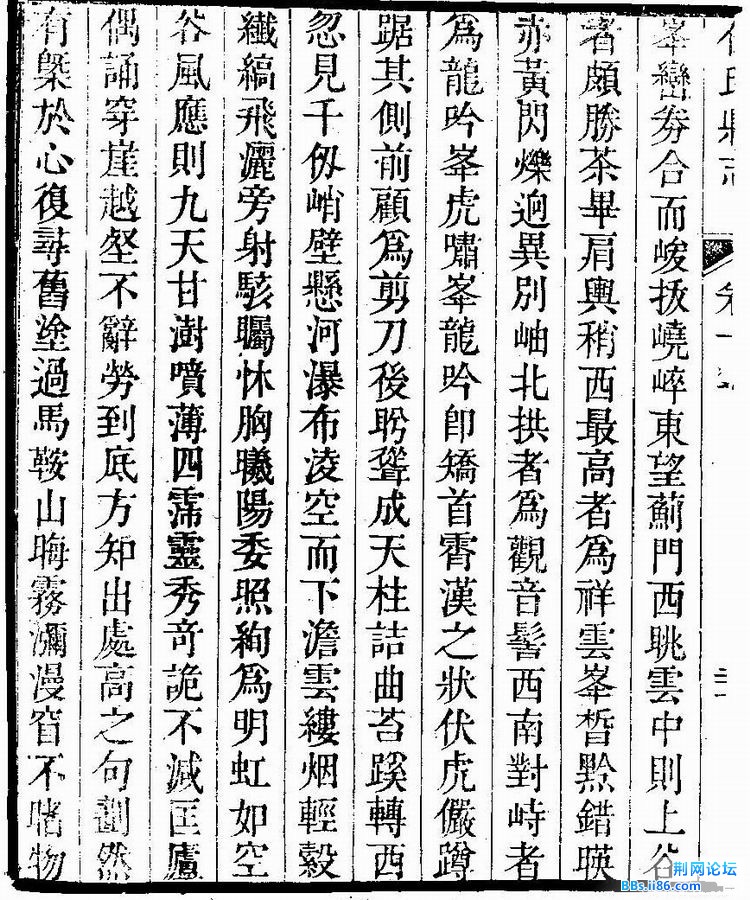 峯巒劵合而峻㧞嶢崪東望薊門西眺雲中則上
者頗勝茶畢肩輿稍西最高者爲祥雲峯晳黟錯暎
赤黃閃爍迥異別岫北拱者爲觀音髻西南對峙者
爲龍吟峯虎嘯峯龍吟卽矯首霄漢之狀伏虎儼蹲
踞其側前顧爲剪刀後盻聳成天柱詰曲苔蹊轉西
忽見千仞峭壁懸河瀑布凌空而下澹雲縷烟輕縠
纖縞飛灑旁射駭矚怵胸曦陽委照絢爲明虹如空
谷風應則九天甘澍噴薄四霈靈秀奇詭不減匡廬
偶誦穿崖越壑不辭勞到底方知出處高之句劃然
有槩於心復尋舊塗過馬鞍山晦霧瀰漫窅不睹物
荆网论坛
BBs.li86.com